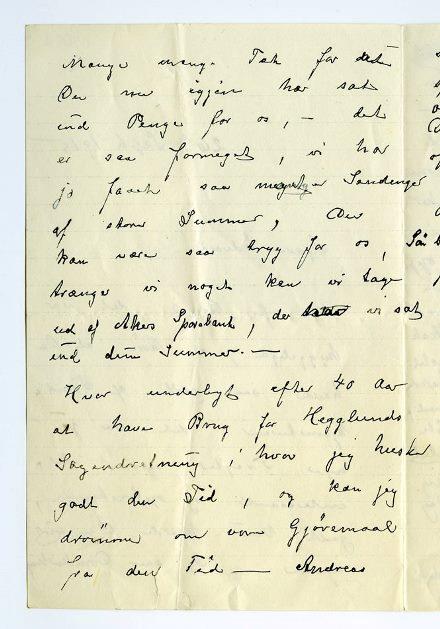 Mange mange Tak for det
Du nu igjen har sat
ind Penge for os, — det
er saa formeget, vi har
jo faaet saa mange Sendinger
af store Summer, Du
kan være saa tryg for os,
trænger vi noget kan vi tage
ud af Akers Sparebank, der vi sat
ind din Summer. —
Hvor underligt efter 40 Aar
at have Brug for Hegglunds
hvor jeg husker
godt den Tid, og kan jeg
drømme om vore Gjøremaal
fra den Tid — Andreas